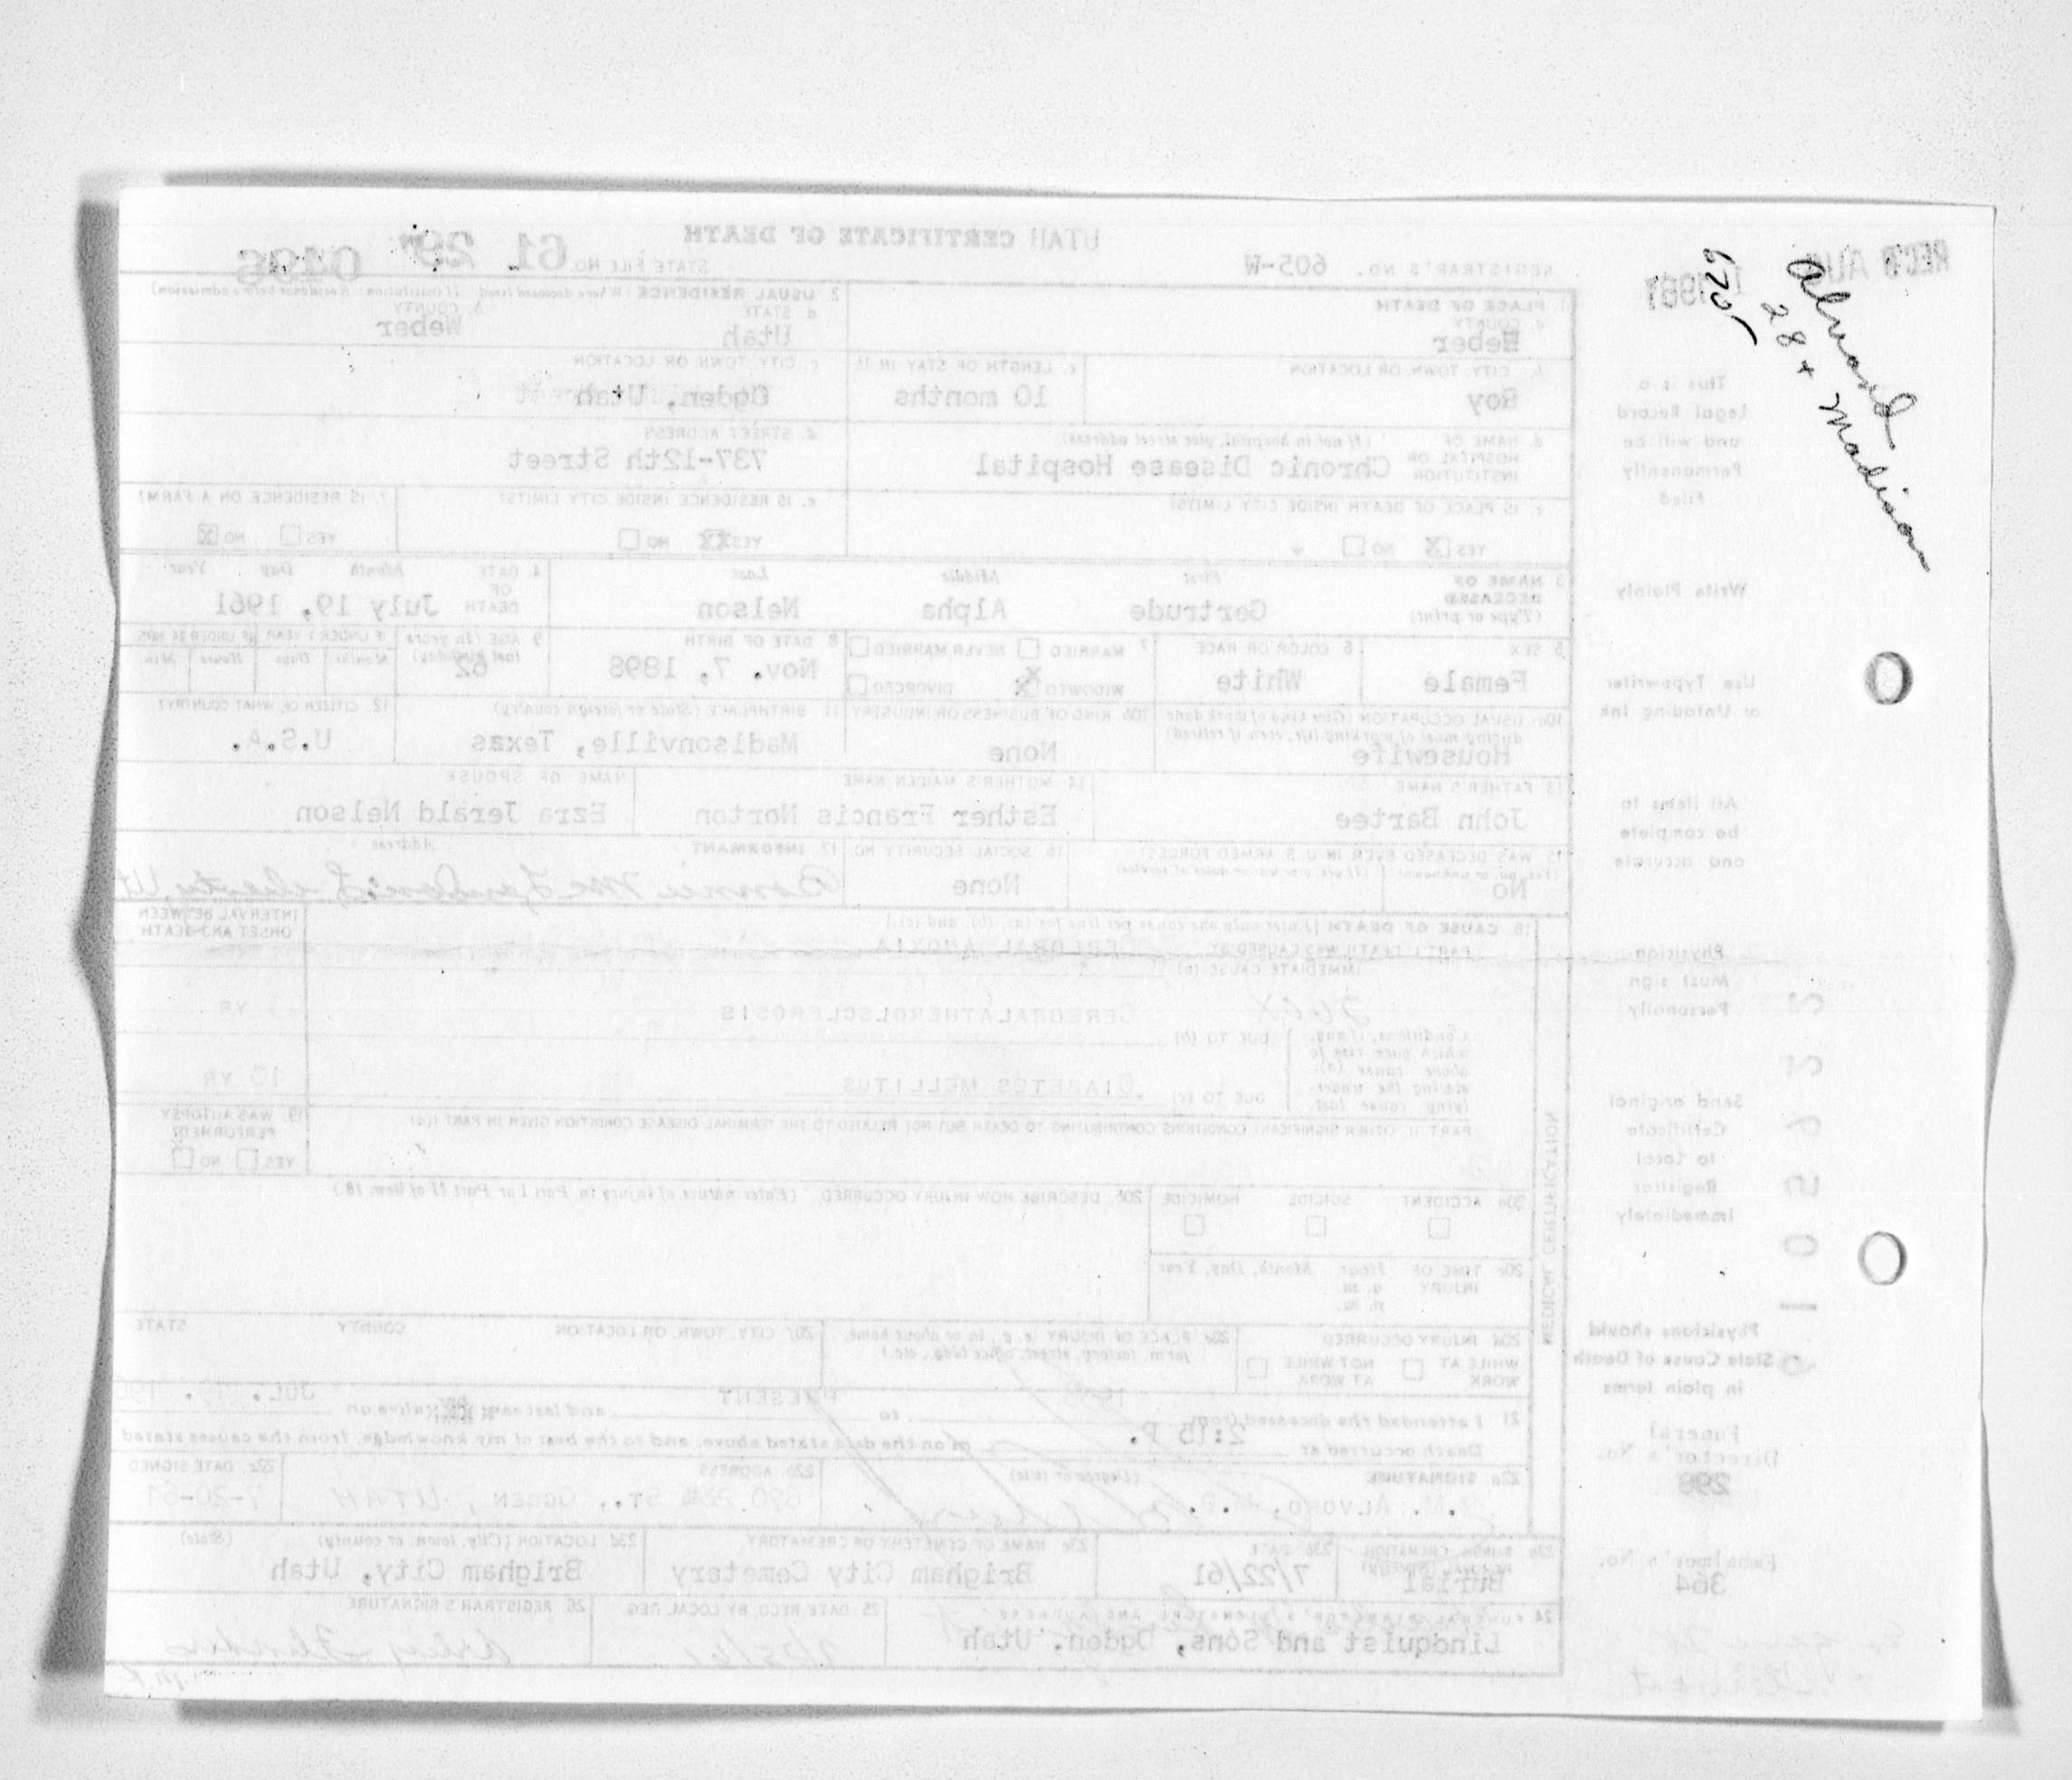 Alvord
28 + Madison
620
REC'D AUG 1 1961
UTAH CERTIFICATE OF DEATH
REGISTRAR'S NO. 605-W
STATE FILE NO. 61 29 0496
1. PLACE OF DEATH
a. COUNTY
Weber
2. USUAL RESIDENCE (Where deceased lived. If institution: Residence before admission)
a. STATE
Utah
b. COUNTY
Weber
b. CITY, TOWN, OR LOCATION
Roy
c. LENGTH OF STAY IN 1b
10 months
c. CITY, TOWN, OR LOCATION
Ogden, Utah
d. NAME OF HOSPITAL OR INSTITUTION (If not in hospital, give street address)
Chronic Disease Hospital
d. STREET ADDRESS
737-12th Street
e. IS PLACE OF DEATH INSIDE CITY LIMITS?
YES X NO
e. IS RESIDENCE INSIDE CITY LIMITS?
YES XX NO
f. IS RESIDENCE ON A FARM?
YES NO X
3. NAME OF DECEASED (Type or print)
First Middle Last
Gertrude Alpha Nelson
4. DATE OF DEATH Month Day Year
July 19, 1961
5. SEX
Female
6. COLOR OR RACE
White
7. MARRIED NEVER MARRIED
WIDOWED X DIVORCED
8. DATE OF BIRTH
Nov. 7, 1898
9. AGE (In years last birthday)
62
IF UNDER 1 YEAR IF UNDER 24 HRS.
Months Days Hours Min.
10a. USUAL OCCUPATION (Give kind of work done during most of working life, even if retired)
Housewife
10b. KIND OF BUSINESS OR INDUSTRY
None
11. BIRTHPLACE (State or foreign country)
Madisonville, Texas
12. CITIZEN OF WHAT COUNTRY?
U.S.A.
13. FATHER'S NAME
John Bartee
14. MOTHER'S MAIDEN NAME
Esther Francis Norton
NAME OF SPOUSE
Ezra Jerald Nelson
15. WAS DECEASED EVER IN U.S. ARMED FORCES?
No
16. SOCIAL SECURITY NO.
None
17. INFORMANT Address
Bonnie
18. CAUSE OF DEATH [Enter only one cause per line for (a), (b), and (c).]
INTERVAL BETWEEN ONSET AND DEATH
PART I. DEATH WAS CAUSED BY:
IMMEDIATE CAUSE (a)
CEREBRAL ANOXIA
Conditions, if any, which gave rise to above cause (a), stating the underlying cause last.
DUE TO (b)
YR
DUE TO (c)
DIABETES MELLITUS
10 YR
PART II. OTHER SIGNIFICANT CONDITIONS CONTRIBUTING TO DEATH BUT NOT RELATED TO THE TERMINAL DISEASE CONDITION GIVEN IN PART I(a)
19. WAS AUTOPSY PERFORMED?
YES NO
20a. ACCIDENT SUICIDE HOMICIDE
20b. DESCRIBE HOW INJURY OCCURRED. (Enter nature of injury in Part I or Part II of item 18.)
20c. TIME OF INJURY Hour Month, Day, Year
a. m.
p. m.
20d. INJURY OCCURRED
WHILE AT WORK NOT WHILE AT WORK
20e. PLACE OF INJURY (e. g., in or about home, farm, factory, street, office bldg., etc.)
20f. CITY, TOWN, OR LOCATION COUNTY STATE
21. I attended the deceased from to PRESENT and last saw alive on JUL. 19, 196
Death occurred at 2:15 P. m on the date stated above; and to the best of my knowledge, from the causes stated.
22a. SIGNATURE (Degree or title)
R.M. ALVORD, M.D.
22b. ADDRESS
670 28th ST., OGDEN, UTAH
22c. DATE SIGNED
7-20-61
23a. BURIAL, CREMATION, REMOVAL (Specify)
Burial
23b. DATE
7/22/61
23c. NAME OF CEMETERY OR CREMATORY
Brigham City Cemetery
23d. LOCATION (City, town, or county) (State)
Brigham City, Utah
24. FUNERAL DIRECTOR'S SIGNATURE AND ADDRESS
Lindquist and Sons, Ogden, Utah
25. DATE RECD. BY LOCAL REG.
26. REGISTRAR'S SIGNATURE
MEDICAL CERTIFICATION
This is a
Legal Record
and will be
Permanently
Filed
Write Plainly
Use Typewriter
or Unfading Ink
All items to
be complete
and accurate
Physician
Must sign
Personally
Send original
Certificate
to Local
Registrar
Immediately
Physicians should
State Cause of Death
in plain terms
Funeral
Director's No.
298
Embalmer's No.
364